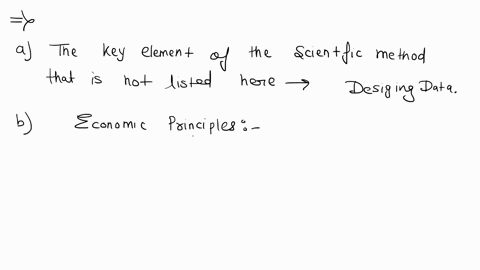 =>
a) The key element of the Scientfic method
that is not listed here → Desiging Data.
b) Economic Principles:-